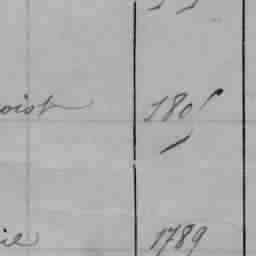 oist 1805
ie 1789